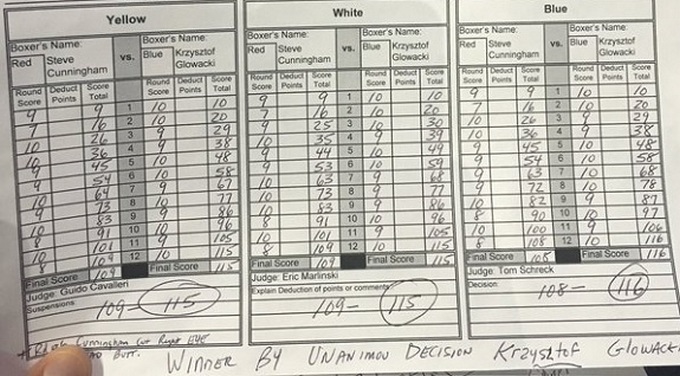 Yellow
Boxer's Name: Boxer's Name:
Red Steve Cunningham vs. Blue Krzysztof Glowacki
Round Score Deduct Points Score Total Round Score Deduct Points Score Total
9 9 1 10 10
7 16 2 10 20
10 26 3 9 29
10 36 4 9 38
9 45 5 10 48
9 54 6 10 58
10 64 7 9 67
9 73 8 10 77
10 83 9 9 86
8 91 10 10 96
10 101 11 9 105
8 109 12 10 115
Final Score 109 Final Score 115
Judge: Guido Cavalleri
Suspensions
109- 115
White
Boxer's Name: Boxer's Name:
Red Steve Cunningham vs. Blue Krzysztof Glowacki
Round Score Deduct Points Score Total Round Score Deduct Points Score Total
9 9 1 10 10
7 16 2 10 20
9 25 3 10 30
10 35 4 9 39
9 44 5 10 49
9 53 6 10 59
10 63 7 9 68
10 73 8 9 77
10 83 9 9 86
8 91 10 10 96
10 101 11 9 105
8 109 12 10 115
Final Score 109 Final Score 115
Judge: Eric Marlinski
Explain Deduction of points or comments
109- 115
Blue
Boxer's Name: Boxer's Name:
Red Steve Cunningham vs. Blue Krzysztof Glowacki
Round Score Deduct Points Score Total Round Score Deduct Points Score Total
9 9 1 10 10
7 16 2 10 20
10 26 3 9 29
10 36 4 9 38
9 45 5 10 48
9 54 6 10 58
9 63 7 10 68
9 72 8 10 78
10 82 9 9 87
8 90 10 10 97
10 100 11 9 106
8 108 12 10 116
Final Score 108 Final Score 116
Judge: Tom Schreck
Decision:
108- 116
Cunningham Cut Right EYE
BUTT.
WINNER BY UNANIMOU DECISION Krzysztof GLOWACKI